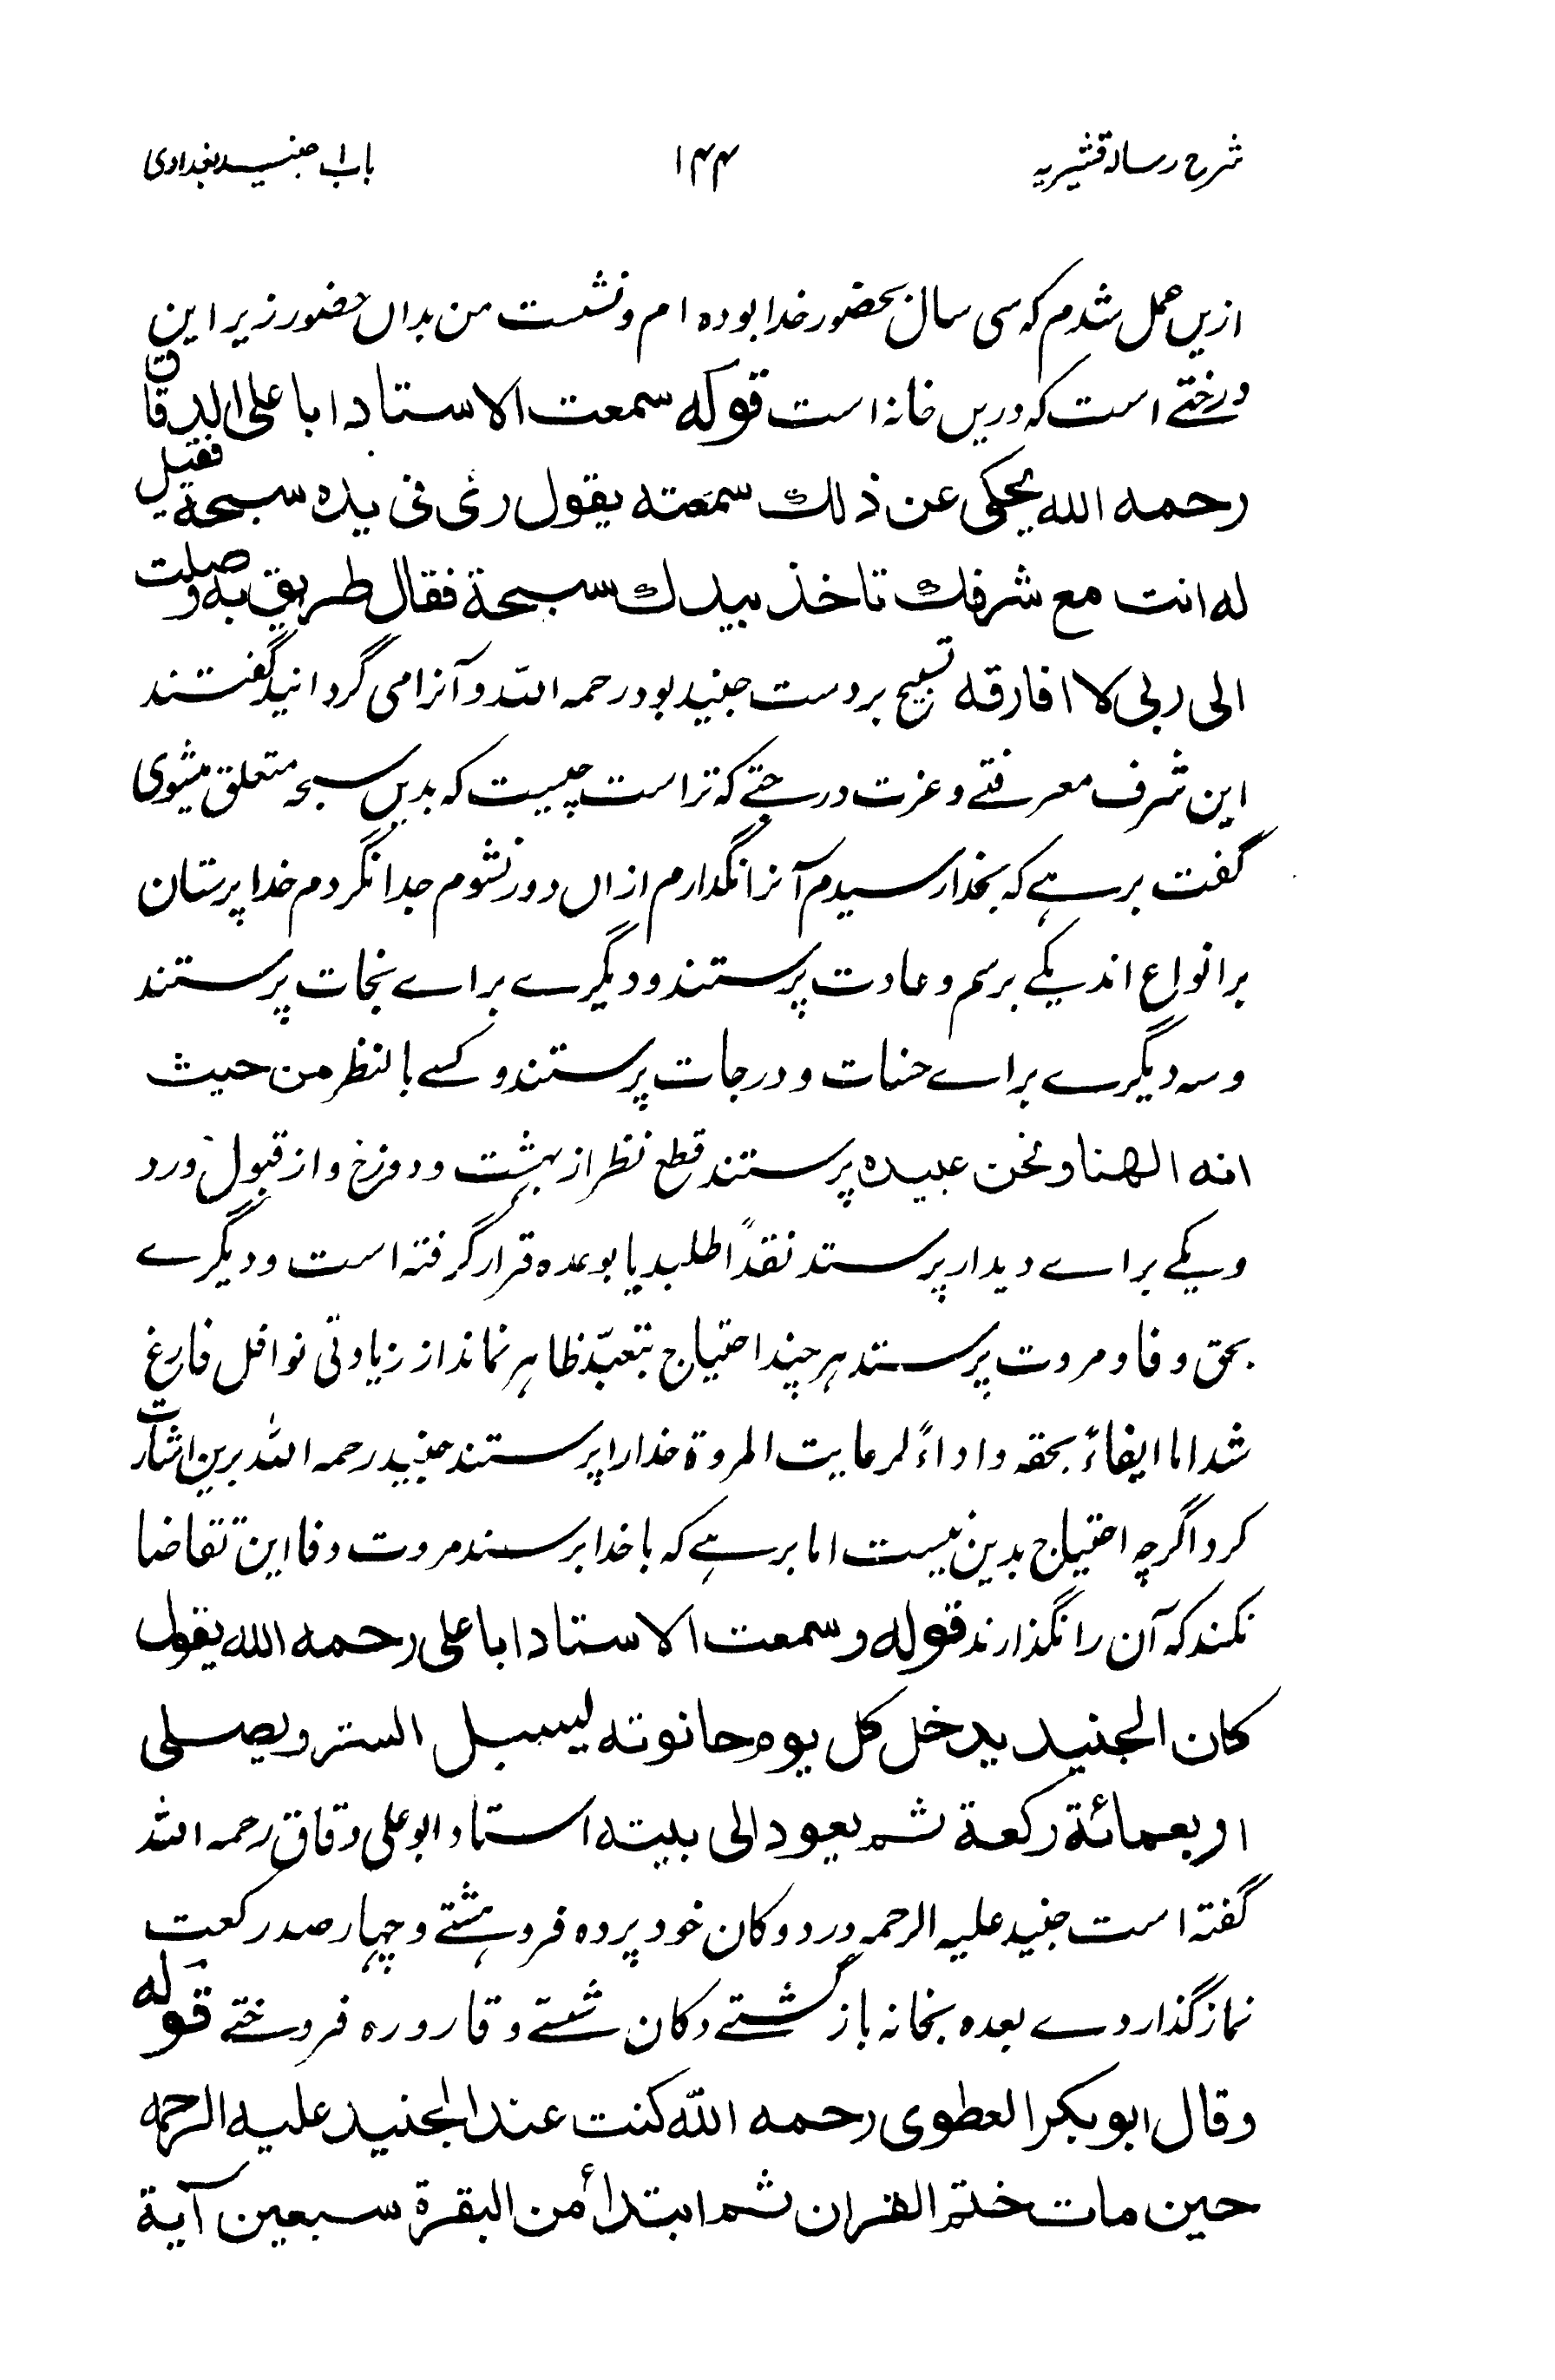 شرح رسالہ قشیریہ ۱۴۴ باب ا جنید بغدادی
ازیں عمل شدم کہ سی سال بحضور خدا بودہ ام و نشست من بداں حضور زیر این
درختے است کہ دریں خانہ است قولہ سمعت الاستاد ابا علی الدقاق
رحمہ اللہ یحکی عن ذلك سمعتہ یقول رئ فی یدہ سبحة فقیل
لہ انت مع شرفك تاخذ بیدك سبحة فقال طریق بہ وصلت
الی ربی لا افارقہ تسبیح بر دست جنید بود رحمہ اللہ و آنرا می گردانید گفتند
این شرف معرفتے و عزت درجتے کہ تراست چیست کہ بدیں سبحہ متعلق میشوی
گفت برہے کہ بخدا رسیدم آنرا نگذارم ازاں دور نشوم جدا نگردم خدا پرستان
بر انواع اند یکے برسم و عادت پرستند و دیگرے براے نجات پرستند
و سہ دیگرے براے حسنات و درجات پرستند و کسے بالنظر من حیث
انہ الھنا و نحن عبیدہ پرستند قطع نظر از بہشت و دوزخ و از قبول ورد
و یکے براے دیدار پرستد نقداً طلبد یا بوعدہ قرار گرفتہ است و دیگرے
بحق وفا و مروت پرستد ہر چند احتیاج بتعبّد ظاہر نماند از زیادتی نوافل فارغ
شد اما ایفاءً بحقہ واداءً لرعایت المروة خدا را پرستند جنید رحمہ اللہ برین اشارت
کرد اگرچہ احتیاج بدین نیست اما برہے کہ با خدا برسند مروت وفا این تقاضا
نکند کہ آن را نگذارند قولہ و سمعت الاستاد ابا علی رحمہ اللہ یقول
کان الجنید یدخل کل یوم حانوتہ لیسبل الستر ویصلی
اربعمائة رکعة ثم یعود الی بیتہ استاد ابو علی دقاق رحمہ اللہ
گفتہ است جنید علیہ الرحمہ در دوکان خود پردہ فروہشتے و چہار صد رکعت
نماز گذاردے بعدہ بخانہ باز گشتے دکان شستے و قارورہ فروختے قولہ
وقال ابوبکر العطوی رحمہ اللّٰہ کنت عند الجنید علیہ الرحمہ
حین مات ختم القران ثم ابتدأ من البقرة سبعین آیة